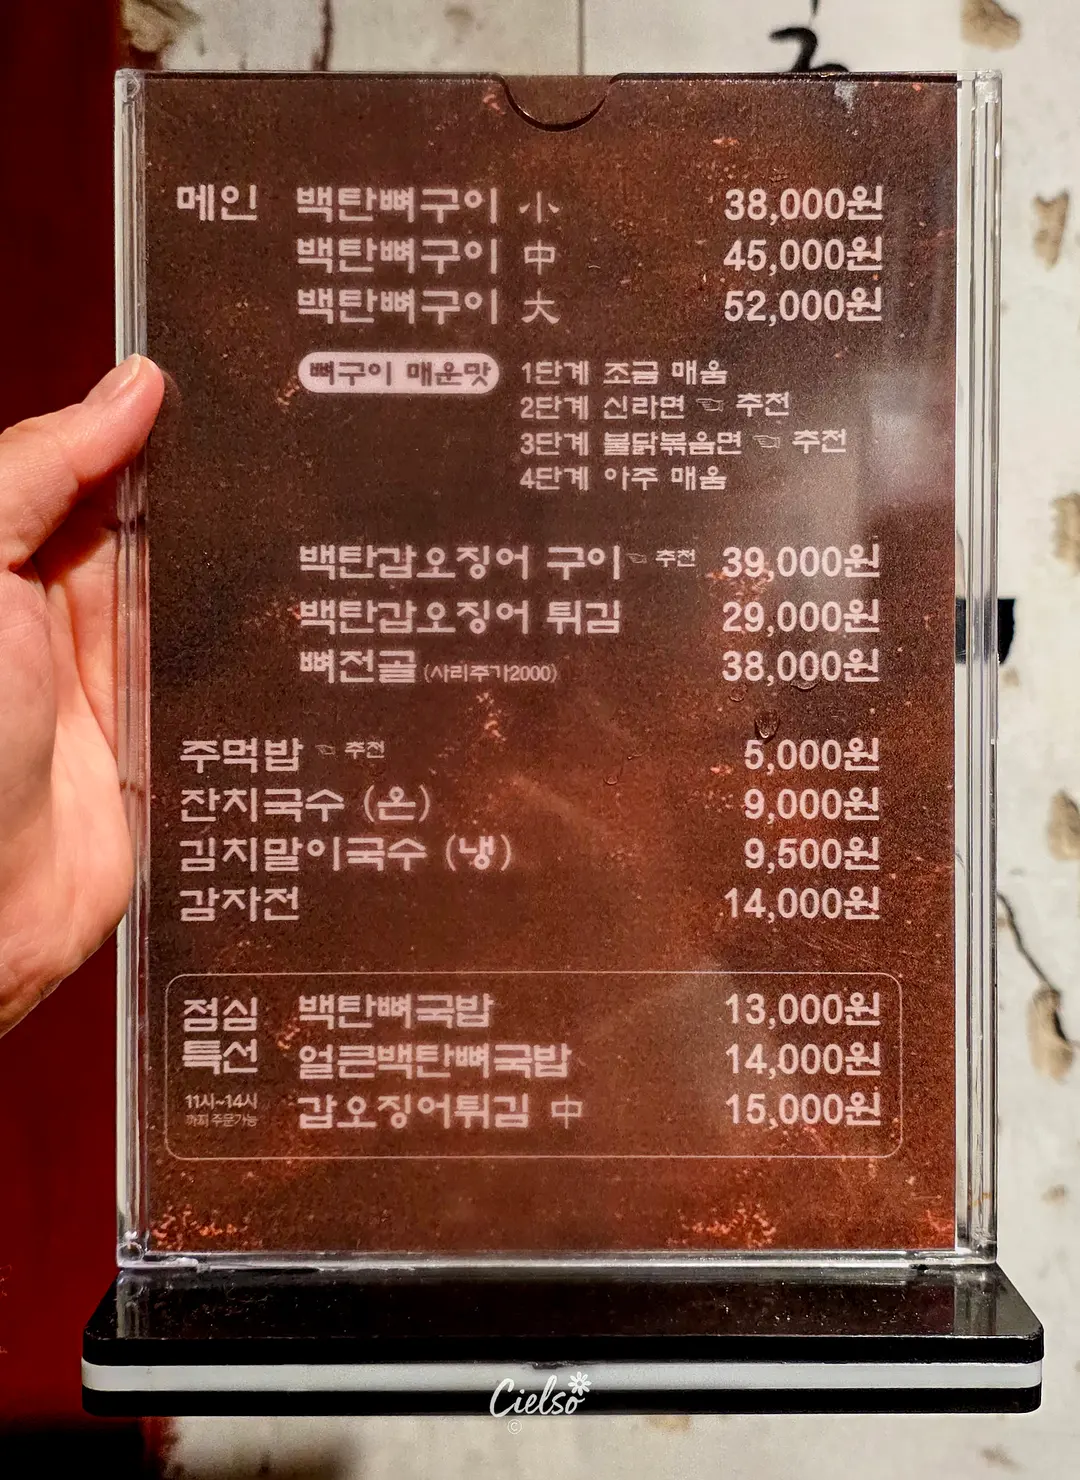 메인 백탄뼈구이 小 38,000원
백탄뼈구이 中 45,000원
백탄뼈구이 大 52,000원
뼈구이 매운맛 1단계 조금 매움
2단계 신라면 ☜ 추천
3단계 불닭볶음면 ☜ 추천
4단계 아주 매움
백탄갑오징어 구이 ☜ 추천 39,000원
백탄갑오징어 튀김 29,000원
뼈전골 (사리추가2000) 38,000원
주먹밥 ☜ 추천 5,000원
잔치국수 (온) 9,000원
김치말이국수 (냉) 9,500원
감자전 14,000원
점심 백탄뼈국밥 13,000원
특선 얼큰백탄뼈국밥 14,000원
11시~14시
까지 주문가능
갑오징어튀김 中 15,000원
Cielso
©